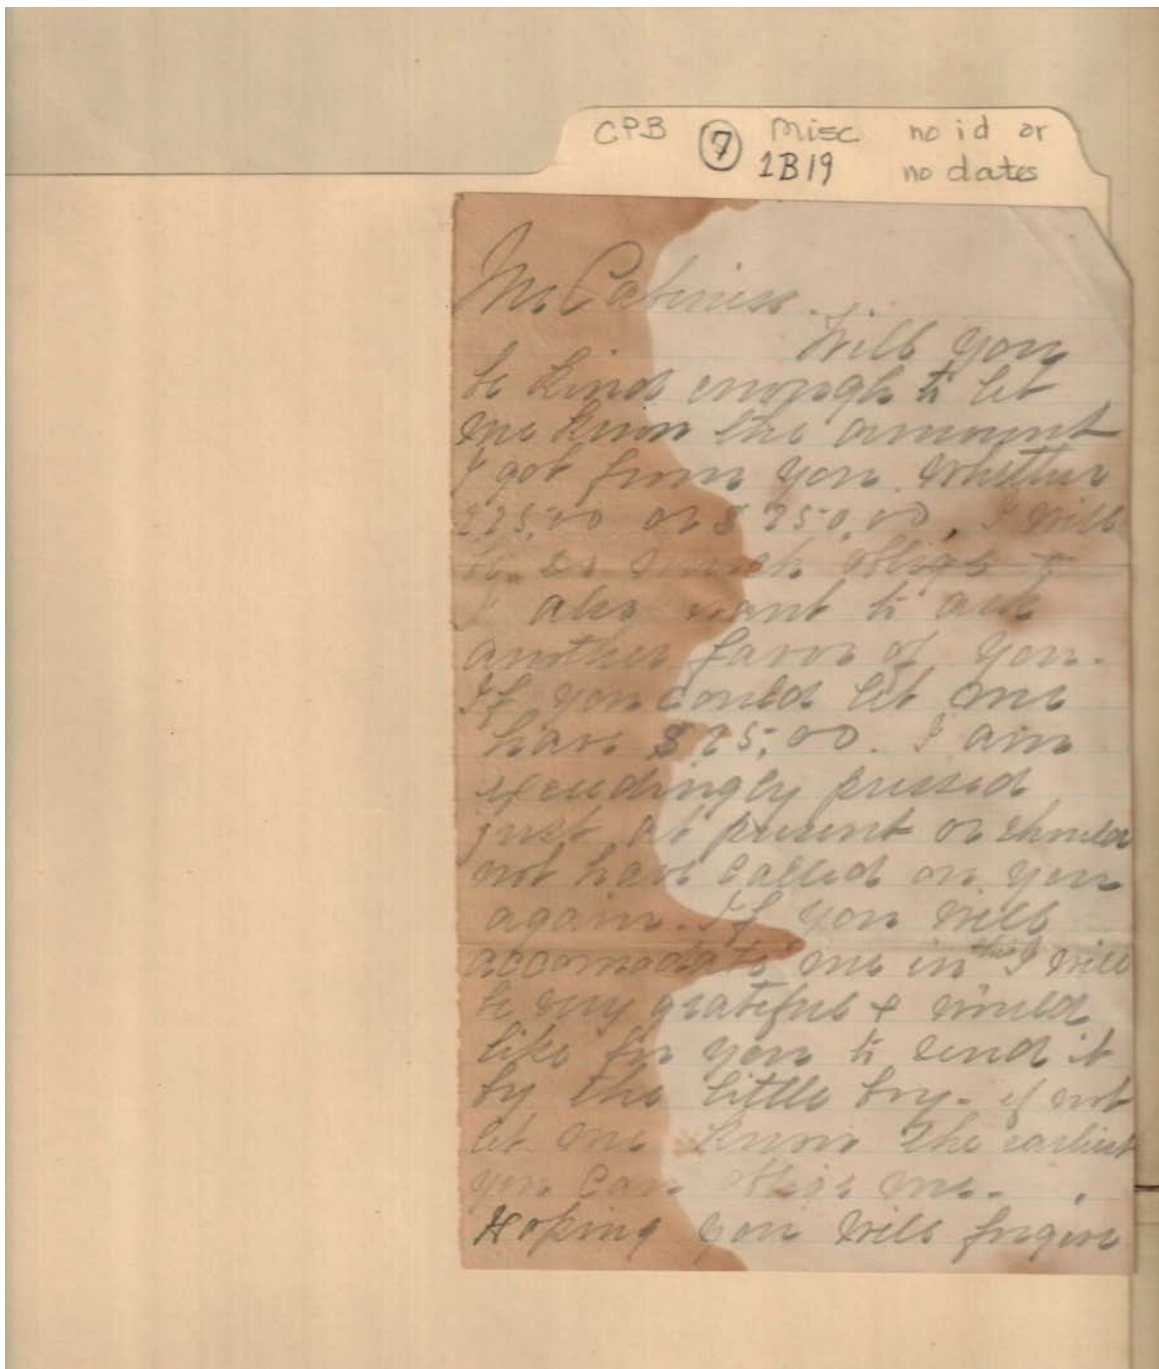 CPB ⑦ Misc no id or
1B19 no dates
Mr Cabiniss.
Will you
be kind enough to let
me know the amount
I got from you whether
225,00 or $250,00. I will
be so much oblige
I also want to ask
another favor of you.
If you could let me
have $25,00. I am
exceedingly pressed
just at present or should
not have called on you
again. If you will
accomodate me in this I will
be very grateful & would
like for you to send it
by the little boy. if not
let me know the earliest
you can oblige me.
Hoping you will forgive